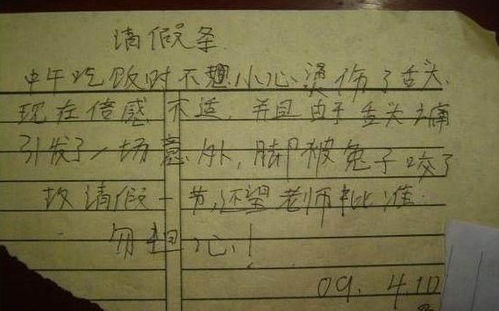 请假条
中午吃饭时不想小心烫伤了舌头.
现在倍感不适,并且由于舌头太痛
引发了一场意外,脚被兔子咬了
故请假一节,还望老师批准.
勿担心!
09. 4.10